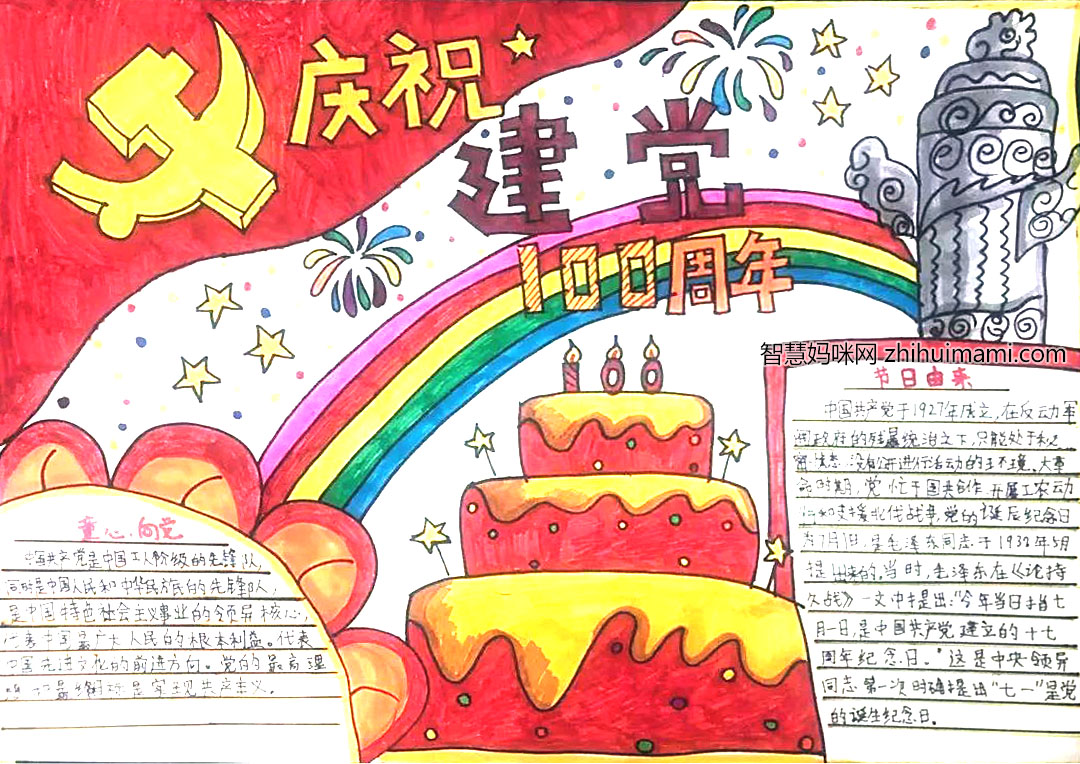 庆祝
建党
100周年
100
智慧妈咪网 zhihuimami.com
童心向党
中国共产党是中国工人阶级的先锋队,
同时是中国人民和中华民族的先锋队,
是中国特色社会主义事业的领导核心,
代表中国最广大人民的根本利益。代表
中国先进文化的前进方向。党的最高理
想和最终目标是实现共产主义。
节日由来
中国共产党于1927年成立,在反动军
阀政府的残暴统治之下,只能处于秘
密状态,没有公开进行活动的环境。大革
命时期,党忙于国共合作、开展工农运动
和支援北伐战争,党的诞辰纪念日
为7月1日,是毛泽东同志于1938年5月
提出来的,当时,毛泽东在《论持
久战》一文中提出:“今年当日指七
月一日,是中国共产党建立的十七
周年纪念日。”这是中央领导
同志第一次明确提出“七一”是党
的诞生纪念日。